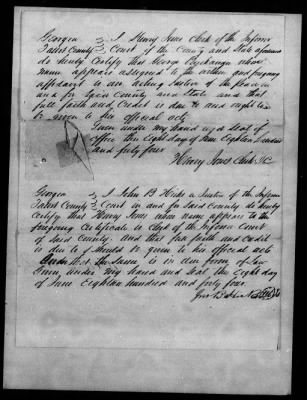 Georgia } I Henry Sims Clerk of the Inferior
Talbot County } Court of the County and State aforesaid
do hereby Certify that George Buchanan whose
name appears assigned to the within and foregoing
affidavit is an acting Justice of the Peace in
and for Said County and State and that
full faith and Credit is due to and ought to
be given to his official acts
Given under my hand and Seal of
office this Eight day of June Eighteen hundred
and forty four
Henry Sims Clerk I.C
Georgia } I John B a Justice of the Inferior
Talbot County } Court in and for Said County do hereby
Certify that Henry Sims whose name appears to the
foregoing Certificate is Clerk of the Inferior Court
of Said County. and that full faith and Credit
is due to & Should be given to his official acts
and that the Same is in due form of Law
Given under my hand and Seal this Eight day
of June Eighteen hundred and forty four
Jno B